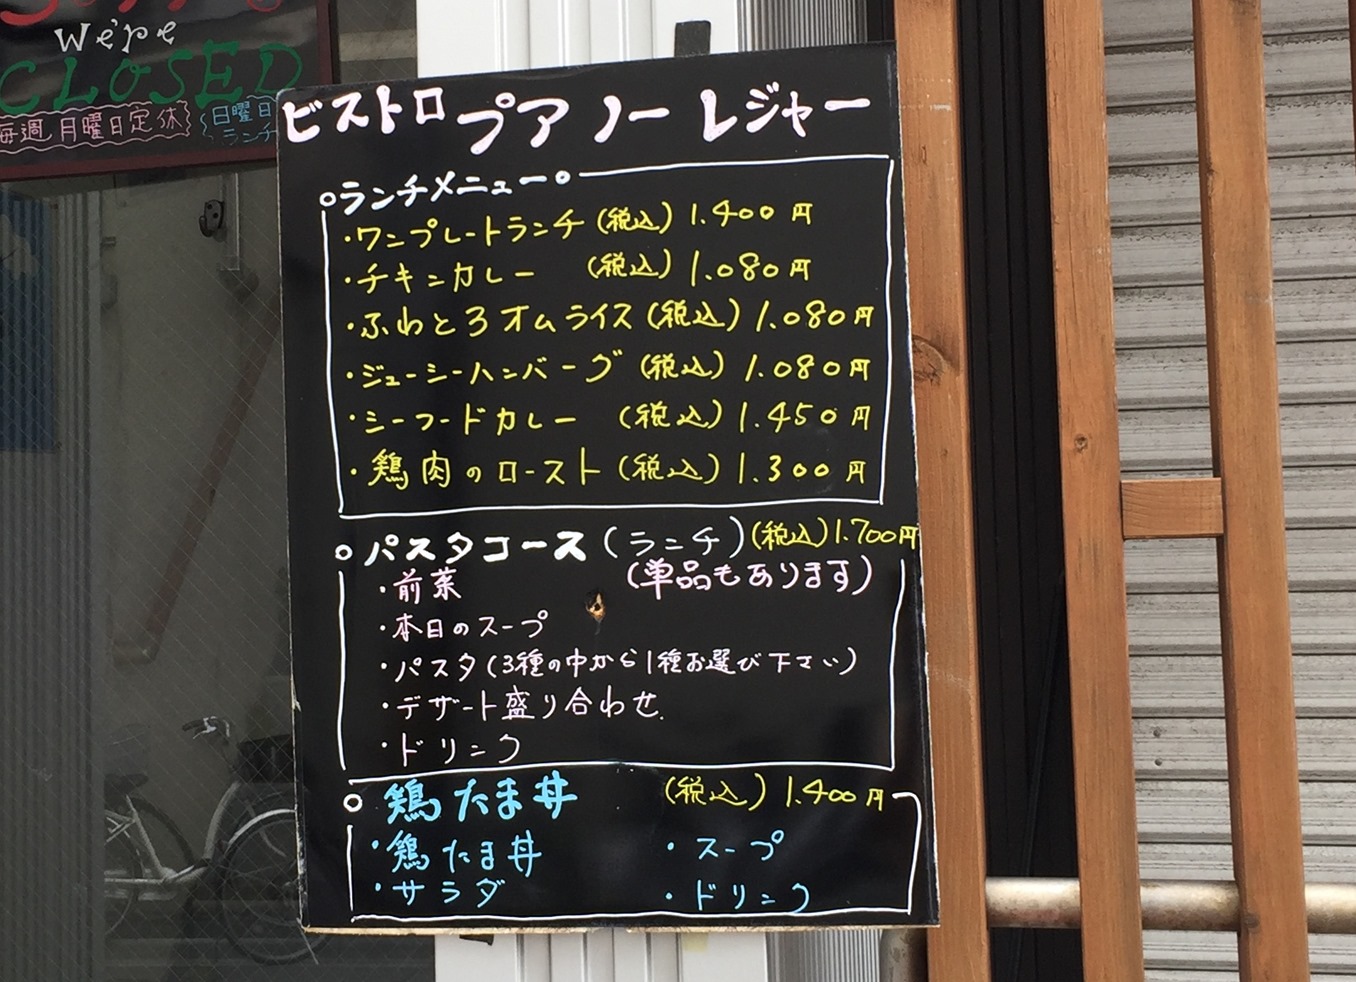 We're
CLOSED
毎週月曜日定休
日曜日
ランチ
ビストロ プアノー レジャー
ランチメニュー
・ワンプレートランチ (税込) 1.400円
・チキンカレー (税込) 1.080円
・ふわとろオムライス (税込) 1.080円
・ジューシーハンバーグ (税込) 1.080円
・シーフードカレー (税込) 1.450円
・鶏肉のロースト (税込) 1.300円
パスタコース (ランチ) (税込) 1.700円
・前菜 (単品もあります)
・本日のスープ
・パスタ (3種の中から1種お選び下さい)
・デザート盛り合わせ
・ドリンク
鶏たま丼 (税込) 1.400円
・鶏たま丼 ・スープ
・サラダ ・ドリンク